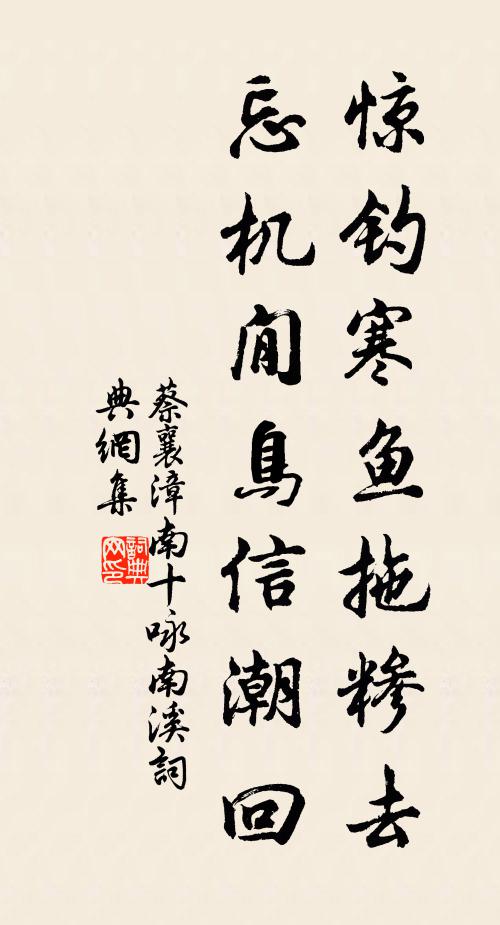 惊钓寒鱼拖糁去
忘机闲鸟信潮回
蔡襄漳南十咏南溪詞
典網集
詞典网印